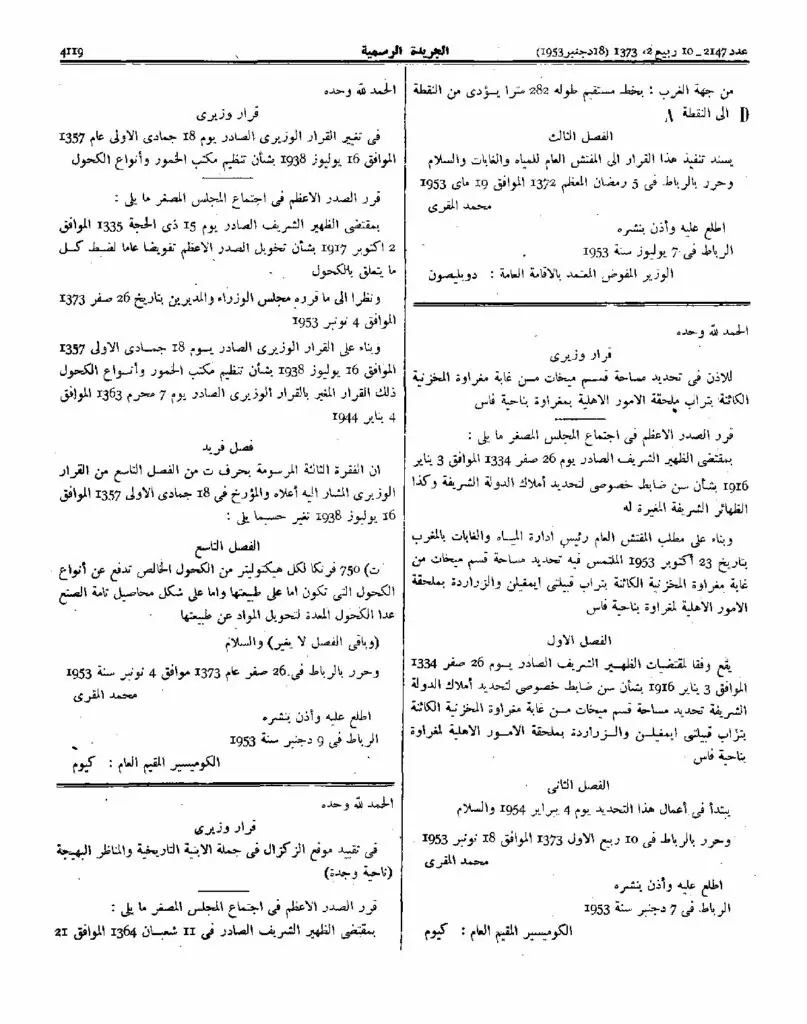 عدد 2147 ـ 10 ربيع 2، 1373 (18 دجنبر 1953)
الجريدة الرسمية
4119
من جهة الغرب : بخط مستقيم طوله 282 مترا يـؤدى من النقطة
D الى النقطة A
الفصل الثالث
يسند تنفيذ هذا القرار الى المفتش العام للمياه والغابات والسلام
وحرر بالرباط فى 5 رمضان المعظم 1372 الموافق 19 ماى 1953
محمد المقرى
اطلع عليه وأذن بنشره
الرباط فى 7 يوليوز سنة 1953
الوزير المفوض المعتمد بالاقامة العامة : دوبليصون
الحمد لله وحده
قرار وزيرى
للاذن فى تحديد مساحة قسم ميخات مـن غابة مغراوة المخزنية
الكائنة بتراب ملحقة الامور الاهلية بمغراوة بناحية فاس
قرر الصدر الاعظم فى اجتماع المجلس المصغر ما يلى :
بمقتضى الظهير الشريف الصادر يوم 26 صفر 1334 الموافق 3 يناير
1916 بشأن سن ضابط خصوصى لتحديد أملاك الدولة الشريفة وكذا
الظهائر الشريفة المغيرة له
وبناء على مطلب المفتش العام رئيس ادارة الميـاه والغابات بالمغرب
بتاريخ 23 أكتوبر 1953 الملتمس فيه تحديد مساحة قسم ميخات من
غابة مغراوة المخزنية الكائنة بتراب قبيلتى ايمغيلن والزراردة بملحقة
الامور الاهلية لمغراوة بناحية فاس
الفصل الاول
يقع وفقا لمقتضيات الظهـير الشريف الصادر يـوم 26 صفر 1334
الموافق 3 يناير 1916 بشأن سن ضابط خصوصى لتحديد أملاك الدولة
الشريفة تحديد مساحة قسم ميخات مـن غابة مغراوة المخزنية الكائنة
بتراب قبيلتى ايمغيلـن والـزراردة بملحقة الامـور الاهلية لمغراوة
بناحية فاس
الفصل الثانى
يبتدأ فى أعمال هذا التحديد يوم 4 براير 1954 والسلام
وحرر بالرباط فى 10 ربيع الاول 1373 الموافق 18 نونبر 1953
محمد المقرى
اطلع عليه وأذن بنشره
الرباط فى 7 دجنبر سنة 1953
الكوميسير المقيم العام : كيوم
الحمد لله وحده
قرار وزيرى
فى تغيير القرار الوزيرى الصادر يوم 18 جمادى الاولى عام 1357
الموافق 16 يوليوز 1938 بشأن تنظيم مكتب الخمور وأنواع الكحول
قرر الصدر الاعظم فى اجتماع المجلس المصغر ما يلى :
بمقتضى الظهير الشريف الصادر يوم 15 ذى الحجة 1335 الموافق
2 اكتوبر 1917 بشأن تخويل الصدر الاعظم تفويضا عاما لضبط كـل
ما يتعلق بالكحول
ونظرا الى ما قرره مجلس الوزراء والمديرين بتاريخ 26 صفر 1373
الموافق 4 نونبر 1953
وبناء على القرار الوزيرى الصادر يـوم 18 جمـادى الاولى 1357
الموافق 16 يوليوز 1938 بشأن تنظيم مكتب الخمور وأنـواع الكحول
ذلك القرار المغير بالقرار الوزيرى الصادر يوم 7 محرم 1363 الموافق
4 يناير 1944
فصل فريد
ان الفقرة الثالثة المرسومة بحرف ت من الفصل التاسع من القرار
الوزيرى المشار اليه أعلاه والمؤرخ فى 18 جمادى الاولى 1357 الموافق
16 يوليوز 1938 تغير حسبما يلى :
الفصل التاسع
ت) 750 فرنكا لكل هيكتوليتر من الكحول الخالص تدفع عن أنواع
الكحول التى تكون اما على طبيعتها واما على شكل محاصيل تامة الصنع
عدا الكحول المعدة لتحويل المواد عن طبيعتها
(وباقى الفصل لا يغير) والسلام
وحرر بالرباط فى 26 صفر عام 1373 موافق 4 نونبر سنة 1953
محمد المقرى
اطلع عليه وأذن بنشره
الرباط فى 9 دجنبر سنة 1953
الكوميسير المقيم العام : كيوم
الحمد لله وحده
قرار وزيرى
فى تقييد موقع الزكزال فى جملة الابنية التاريخية والمناظر البهيجة
(ناحية وجدة)
قرر الصدر الاعظم فى اجتماع المجلس المصغر ما يلى :
بمقتضى الظهير الشريف الصادر فى 11 شعبـان 1364 الموافق 21